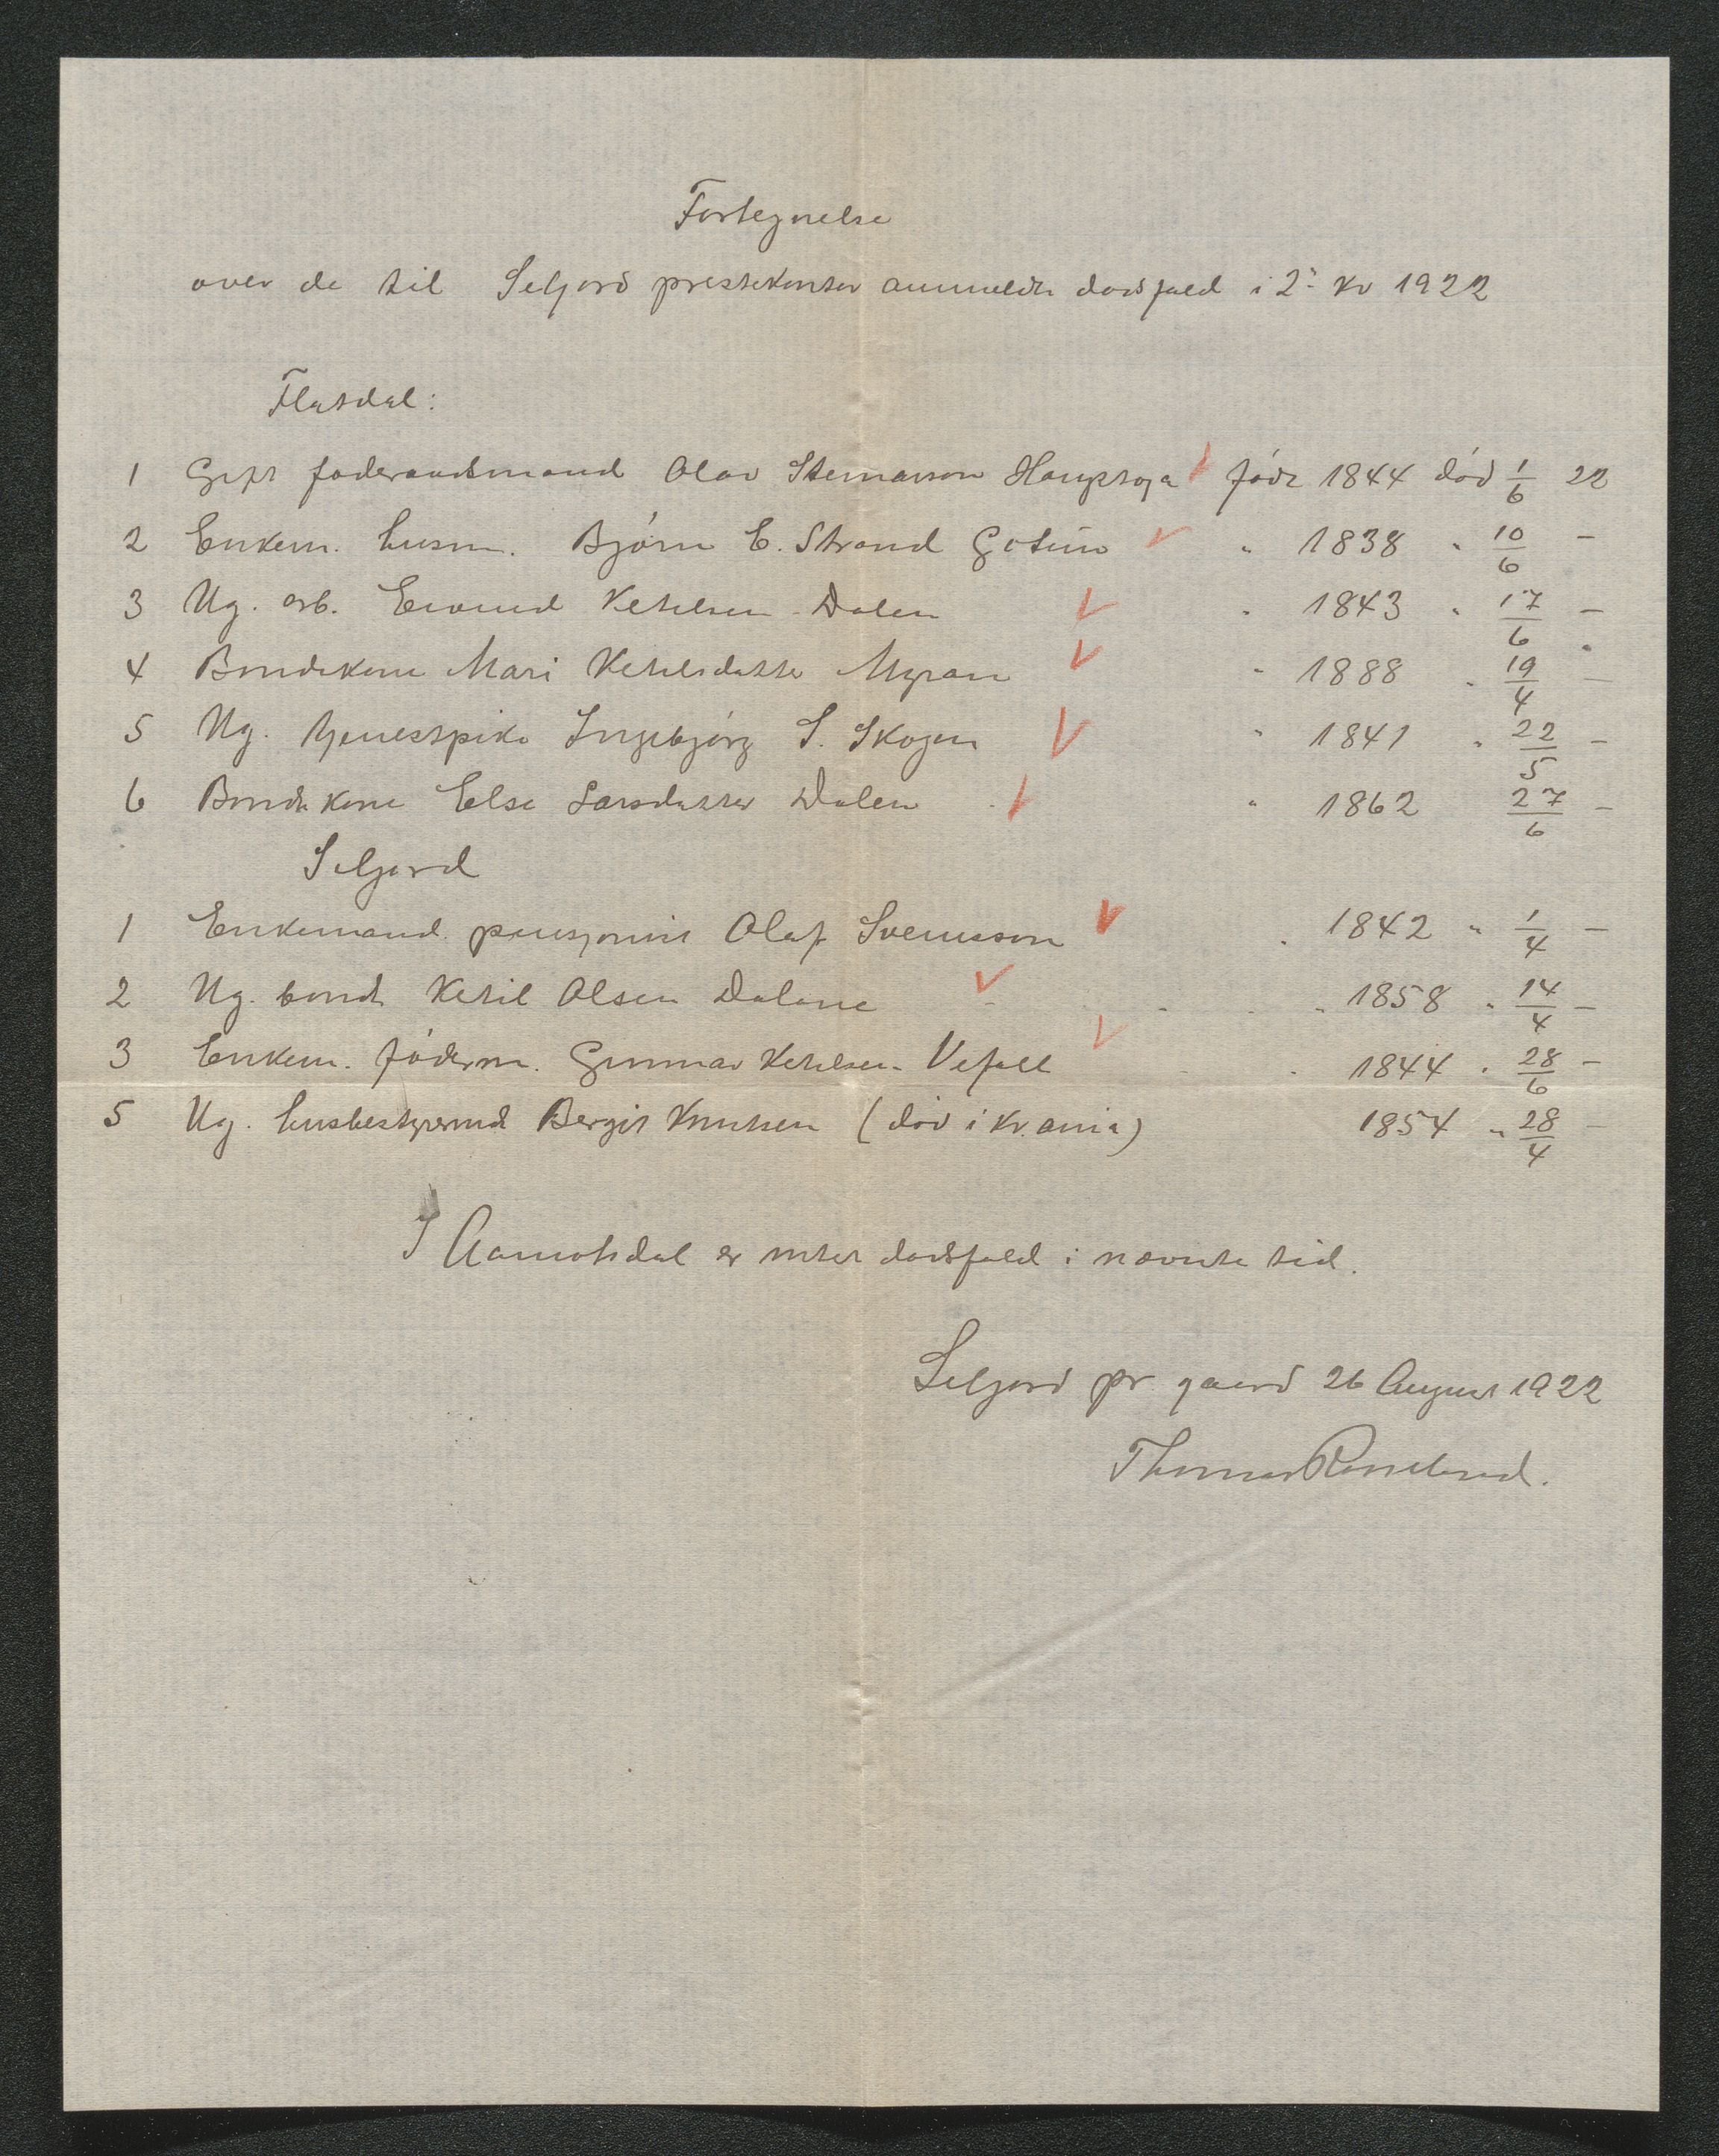 Fortegnelse
over de til Seljord prestekontor anmeldte dødsfald i 2. kv 1922
Flatdal:
1 Gift føderaadsmand Olav Steinarson født 1844 død 1/6 22
2 Enkem. husm. Bjørn E. Strand " 1838 " 10/6 -
3 Ug. arb. Eivind Ketilsen Dalen " 1843 " 17/6 -
4 Bondekone Mari Ketilsdatter Myran " 1888 " 19/4 -
5 Ug. tjenestpike Ingebjørg S. Skogen " 1841 " 22/5 -
6 Bondekone Else Larsdatter Dalen " 1862 27/6 -
Seljord
1 Enkemand pensjonist Olaf Svenusson " 1842 " 1/4 -
2 Ug. bonde Ketil Olsen Dalane " 1858 " 14/4 -
3 Enkem. føderm. Gunnar Ketilsen Vefall " 1844 " 28/6 -
5 Ug. husbestyrerind Bergit Knutsen (død i Kr.ania) 1854 " 28/4 -
I Aamotsdal er intet dødsfald i nævnte tid.
Seljord pr. gaard 26 August 1922
Thomas